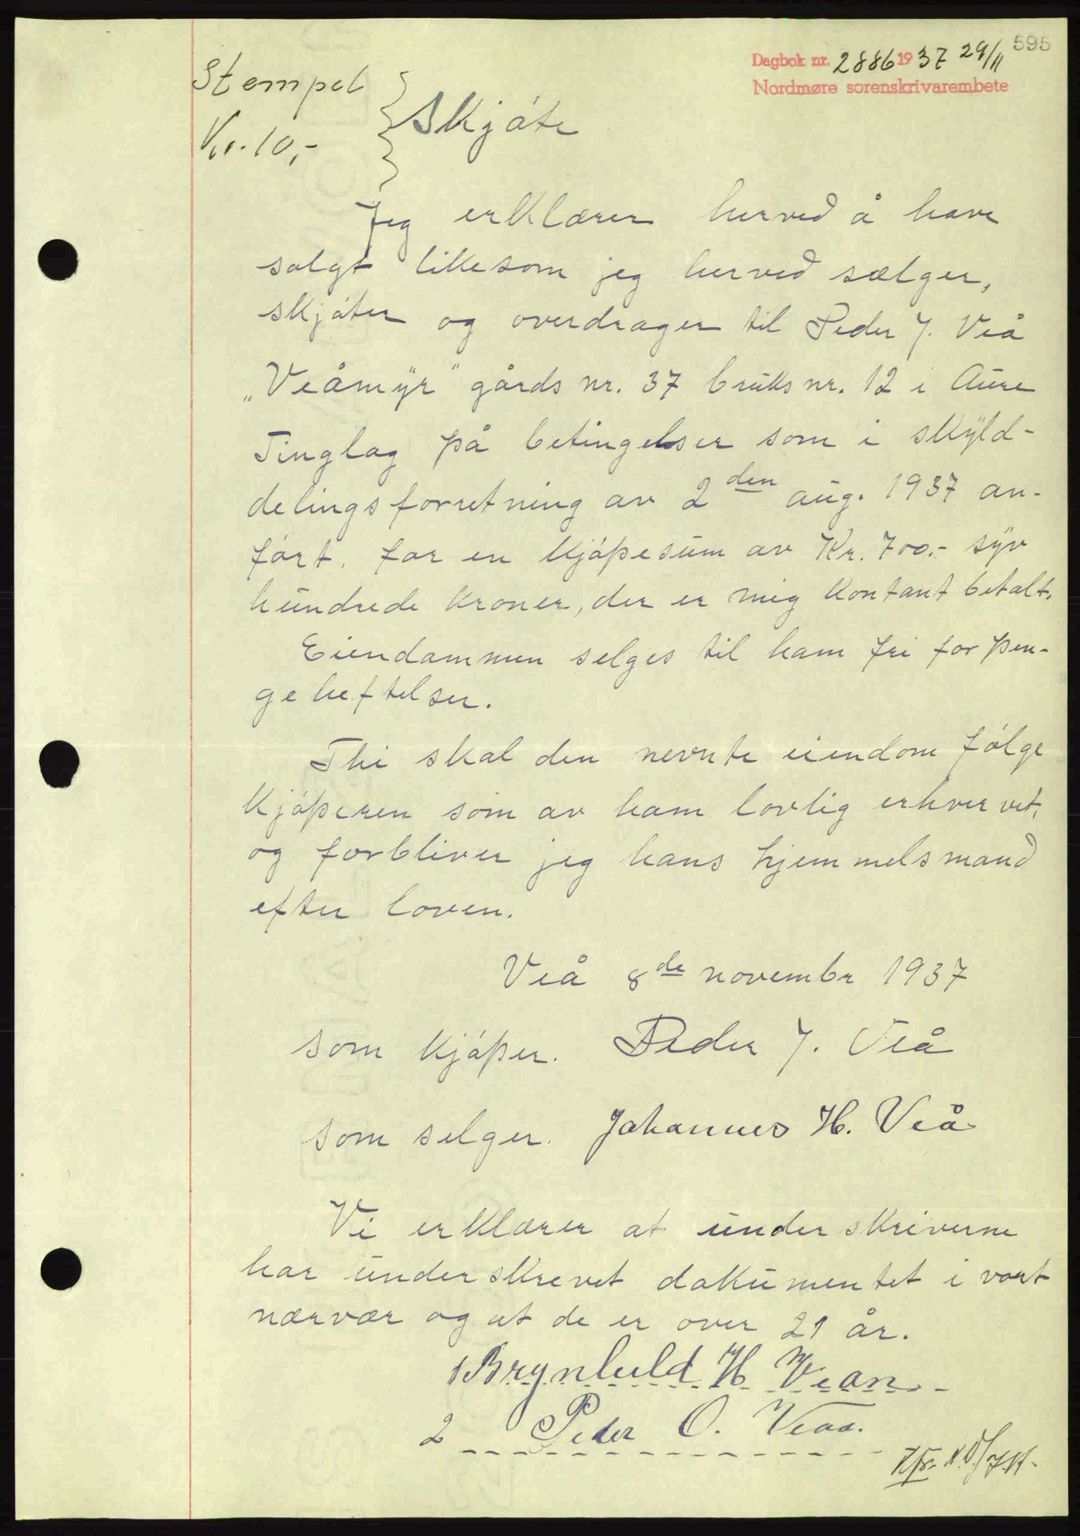 595
Dagbok nr. 2886 1937 29/11
Nordmøre sorenskrivarembete
Stempel
Kr. 10,-
Skjøte
Jeg erklærer herved å have
solgt likesom jeg herved sælger,
skjøter og overdrager til Peder J. Veå
„Veåmyr" gårds nr. 37 bruks nr. 12 i Aure
Tinglag på betingelser som i skyld-
delingsforretning av 2den aug. 1937 an-
ført, for en kjøpesum av Kr. 700.- syv
hundrede kroner, der er mig kontant betalt.
Eiendommen selges til ham fri for pen-
geheftelser.
Thi skal den nevnte eiendom følge
kjøperen som av ham lovlig erhvervet,
og forbliver jeg hans hjemmelsmand
efter loven.
Veå 8de novembr 1937
som kjøper. Peder J. Veå
som selger. Johannes H. Veå
Vi erklærer at underskriverne
har underskrevet dokumentet i vort
nærvær og at de er over 21 år.
1 Brynhild H. Vean
2 Peder O. Veaa.